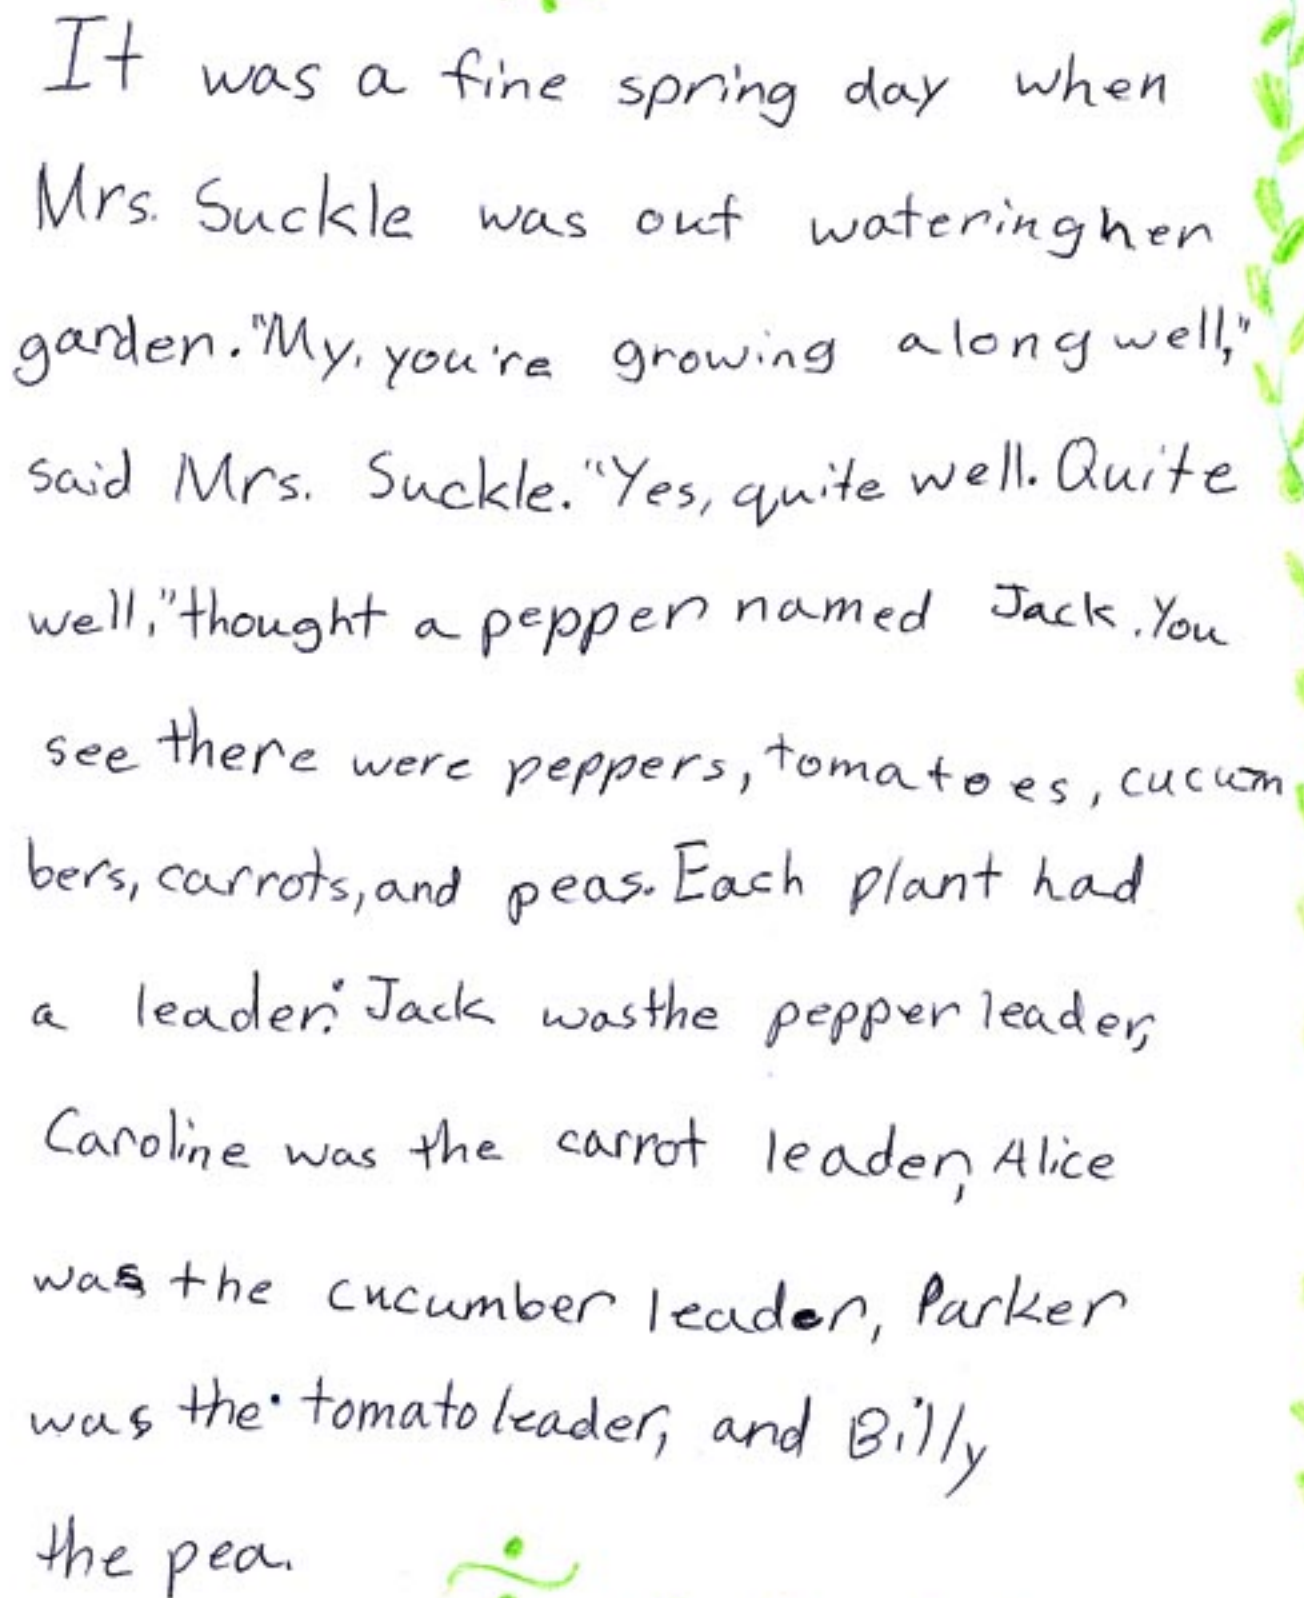 It was a fine spring day when
Mrs. Suckle was out watering her
garden. "My, you're growing along well,"
said Mrs. Suckle. "Yes, quite well. Quite
well," thought a pepper named Jack. You
see there were peppers, tomatoes, cucum
bers, carrots, and peas. Each plant had
a leader: Jack was the pepper leader,
Caroline was the carrot leader, Alice
was the cucumber leader, Parker
was the tomato leader, and Billy
the pea.